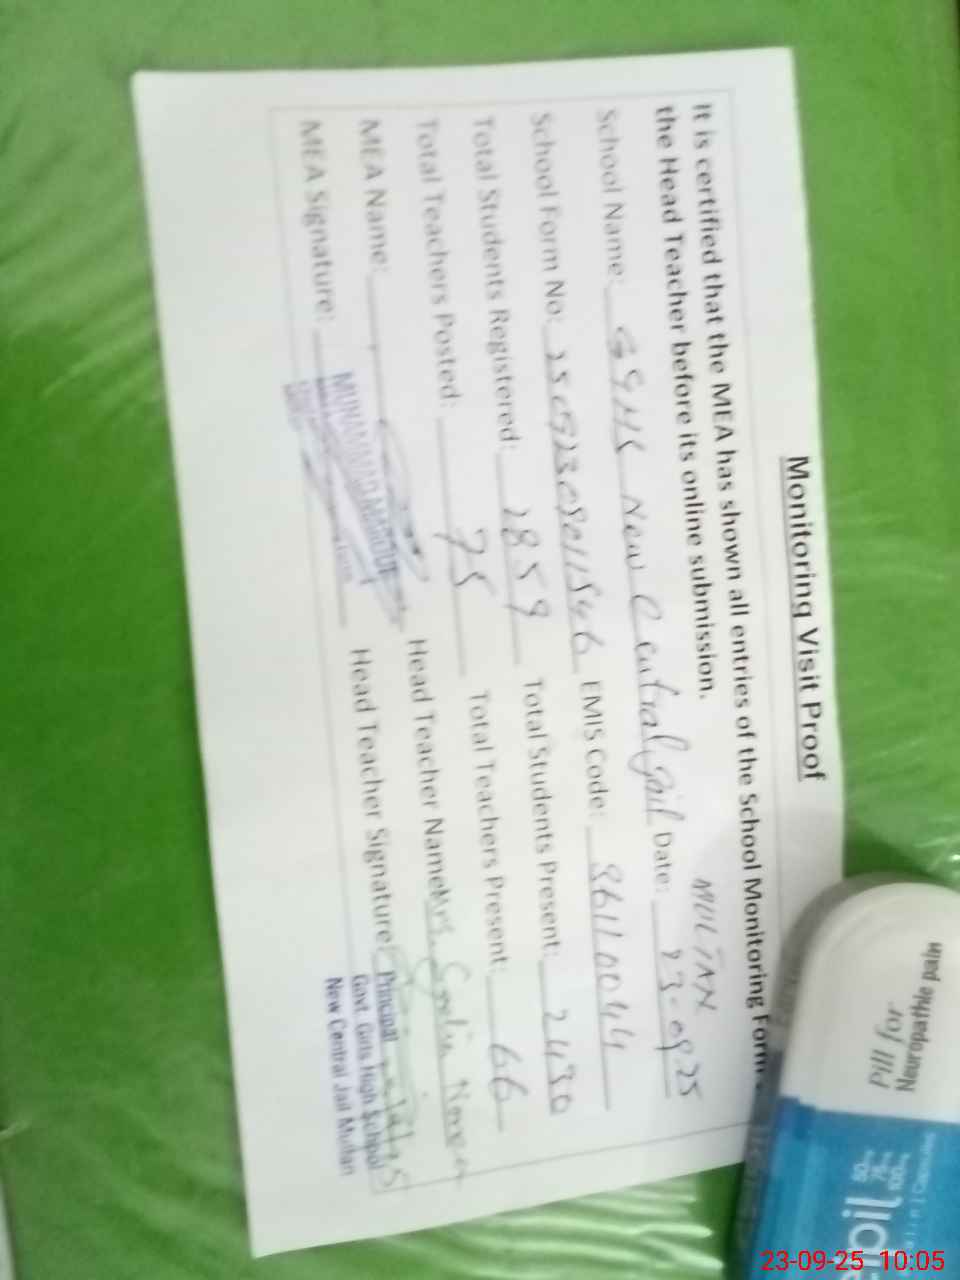 Monitoring Visit Proof
It is certified that the MEA has shown all entries of the School Monitoring Form
the Head Teacher before its online submission.
MULTAN
School Name: GGHS New Central Jail Date: 23-09-25
School Form No: EMIS Code: 36110044
Total Students Registered: 2859 Total Students Present: 2430
Total Teachers Posted: 75 Total Teachers Present: 66
MEA Name: Head Teacher Name: Mrs.
MEA Signature: MUHAMMAD Head Teacher Signature:
Principal
Govt. Girls High School
New Central Jail Multan
Pill for
Neuropathic pain
50mg
75mg
100mg
Capsules
23-09-25 10:05